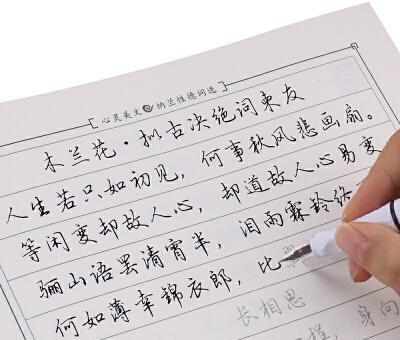 心灵美文 纳兰性德词选
木兰花·拟古决绝词柬友
人生若只如初见，何事秋风悲画扇。
等闲变却故人心，却道故人心易变
骊山语罢清宵半，泪雨霖铃终
何如薄幸锦衣郎，比
长相思
程，身向